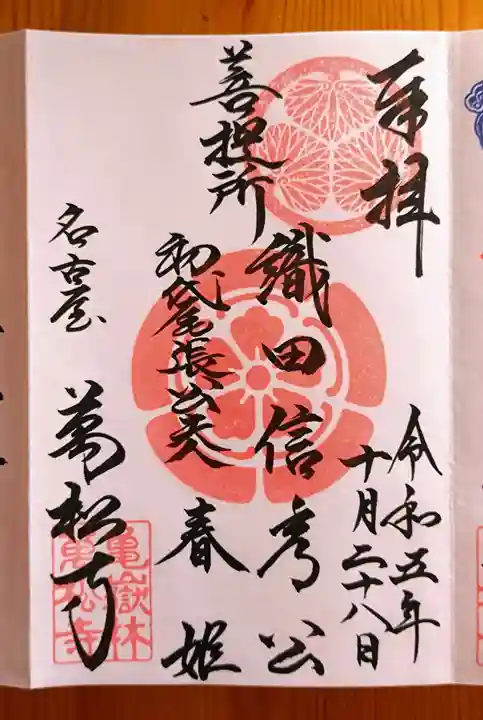 奉拝
令和五年
十月二十八日
菩提所
織田信秀公
初代尾張公夫人 春姫
名古屋 萬松寺
龜嶽林
萬松寺